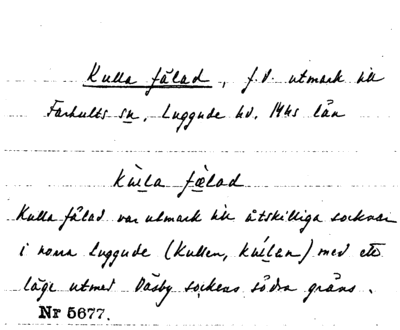 Kulla fälad, f.d. utmark till
Farhults sn. Luggude hd. Mhs län
Kùlla fǽlad
Kulla fälad var utmark till åtskilliga socknar
i norra Luggude (Kullen, kùllan) med ett
läge utmed Väsby sockens södra gräns.
Nr 5677.